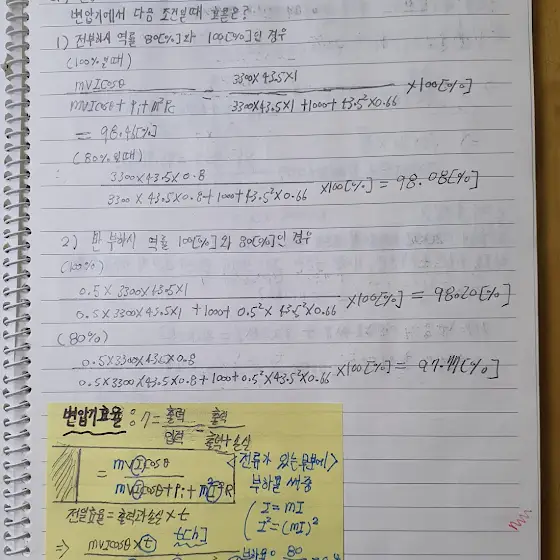 변압기에서 다음 조건일때 효율은?
1) 전부하시 역률 80[%]와 100[%]인 경우
(100%일때)
mVIcosθ / mVIcosθ + Pi + m²Pc = 3300×43.5×1 / 3300×43.5×1 + 1000 + 43.5²×0.66 ×100[%]
= 98.46[%]
(80%일때)
3300×43.5×0.8 / 3300×43.5×0.8+1000+43.5²×0.66 ×100[%] = 98.08[%]
2) 반 부하시 역률 100[%]와 80[%]인 경우
(100%)
0.5×3300×43.5×1 / 0.5×3300×43.5×1 + 1000+ 0.5²×43.5²×0.66 ×100[%] = 98.20[%]
(80%)
0.5×3300×43.5×0.8 / 0.5×3300×43.5×0.8+1000+0.5²×43.5²×0.66 ×100[%] = 97.77[%]
변압기효율 : η = 출력 / 입력 = 출력 / 출력+손실
= mVIcosθ / mVIcosθ + Pi + m²I²R
<전류가 있는 부분에>
부하율 써줌
( I = mI
I² = (mI)²
전일효율 = 출력과 손실 × t
⇒ mVIcosθ × t
t[h]
부하율 80